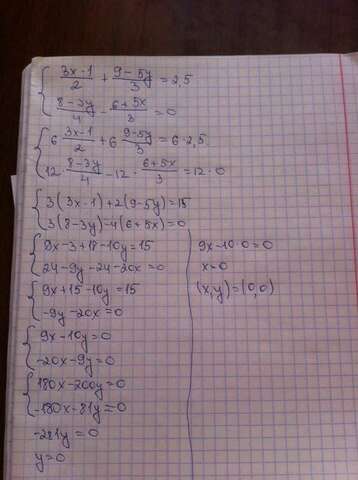 { (3x-1)/2 + (9-5y)/3 = 2,5
(8-3y)/4 - (6+5x)/3 = 0
{ 6·(3x-1)/2 + 6·(9-5y)/3 = 6·2,5
12·(8-3y)/4 - 12·(6+5x)/3 = 12·0
{ 3(3x-1)+2(9-5y)=15
3(8-3y)-4(6+5x)=0
{ 9x-3+18-10y=15
24-9y-24-20x=0
{ 9x+15-10y=15
-9y-20x=0
{ 9x-10y=0
-20x-9y=0
{ 180x-200y=0
-180x-81y=0
-281y=0
y=0
9x-10·0=0
x=0
(x,y)=(0,0)